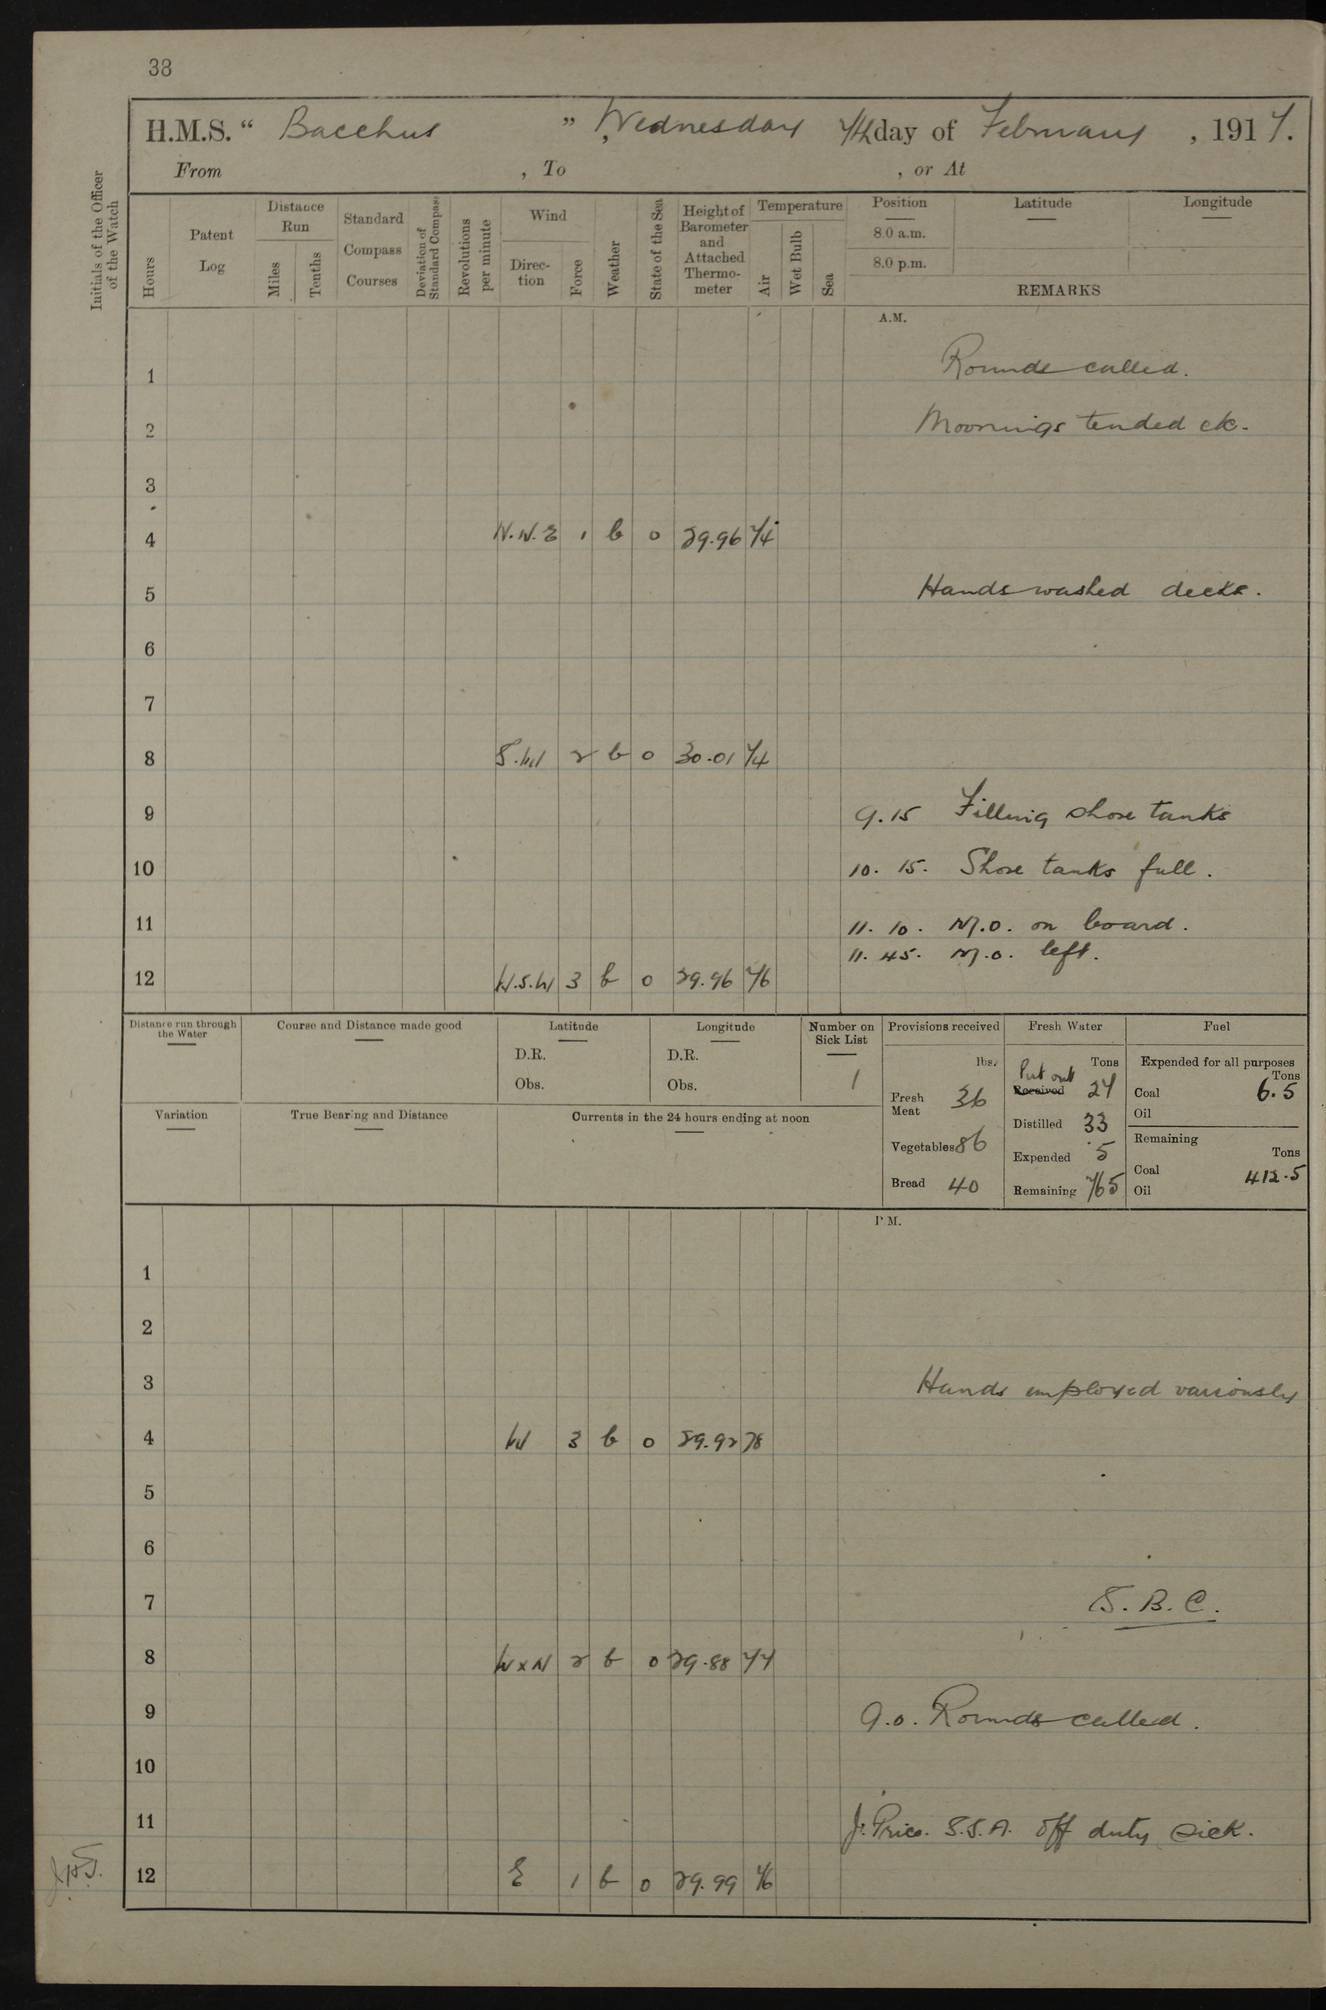 38
H.M.S. " Bacchus ", Wednesday 7th day of February, 1917.
From , To , or At
Initials of the Officer of the Watch
Hours
Patent Log
Distance Run
Miles
Tenths
Standard Compass Courses
Deviation of Standard Compass
Revolutions per minute
Wind
Direction
Force
Weather
State of the Sea
Height of Barometer and Attached Thermometer
Temperature
Air
Wet Bulb
Sea
Position
8.0 a.m.
8.0 p.m.
Latitude
Longitude
REMARKS
A.M.
1 Rounds called.
2 Moorings tended etc.
3
4 N.N.E 1 b 0 29.96 74
5 Hands washed decks.
6
7
8 S.W 2 b 0 30.01 74
9 9.15 Filling shore tanks
10 10.15. Shore tanks full.
11 11.10. M.O. on board.
11.45. M.O. left.
12 W.S.W 3 b 0 29.96 76
Distance run through the Water
Course and Distance made good
Latitude
D.R.
Obs.
Longitude
D.R.
Obs.
Number on Sick List
1
Provisions received
lbs.
Fresh Meat 36
Vegetables 86
Bread 40
Fresh Water
Tons
Put out
Received 27
Distilled 33
Expended 5
Remaining 765
Fuel
Expended for all purposes
Tons
Coal 6.5
Oil
Remaining
Tons
Coal 412.5
Oil
Variation
True Bearing and Distance
Currents in the 24 hours ending at noon
P.M.
1
2
3 Hands employed variously
4 W 3 b 0 29.92 78
5
6
7 S.B.C.
8 WxN 2 b 0 29.88 77
9 9.0. Rounds called.
10
11 J. Price. S.S.A. off duty sick.
12 E 1 b 0 29.99 76